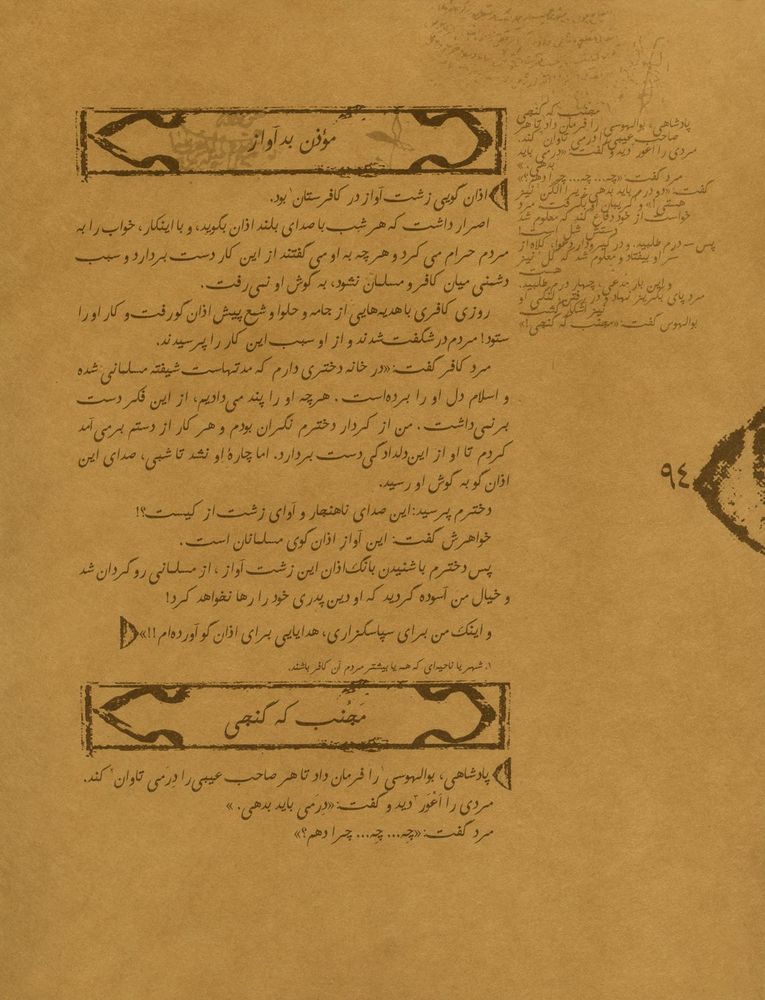 مؤذن بد آواز
اذان گویی زشت آواز در کافرستان۱ بود.
اصرار داشت که هر شب با صدای بلند اذان بگوید، و با اینکار، خواب را به
مردم حرام می کرد و هر چه به او می گفتند از این کار دست بردارد و سبب
دشمنی میان کافر و مسلمان نشود، به گوش او نمی رفت.
روزی کافری با هدیه هایی از جامه و حلوا و شمع پیش اذان گو رفت و کار او را
ستود! مردم در شگفت شدند و از او سبب این کار را پرسیدند.
مرد کافر گفت: «در خانه دختری دارم که مدتهاست شیفته مسلمانی شده
و اسلام دل او را برده است. هرچه او را پند می دادیم، از این فکر دست
برنمی داشت. من از کردار دخترم نگران بودم و هر کار از دستم برمی آمد
کردم تا او از این دلدادگی دست بردارد. اما چارهٔ او نشد تا شبی، صدای این
اذان گو به گوش او رسید.
دخترم پرسید: این صدای ناهنجار و آوای زشت از کیست؟!
خواهرش گفت: این آواز اذان گوی مسلمانان است.
پس دخترم با شنیدن بانگ اذان این زشت آواز، از مسلمانی روگردان شد
و خیال من آسوده گردید که او دین پدری خود را رها نخواهد کرد!
و اینک من برای سپاسگزاری، هدایایی برای اذان گو آورده ام!!»
۱. شهر یا ناحیه ای که همه یا بیشتر مردم آن کافر باشند.
مَجُنب که گنجی
پادشاهی، بوالهوسی را فرمان داد تا هر صاحب عیبی را دِرَمی تاوان کند.
مردی را اَعْوَر دید و گفت: «دِرَمی باید بدهی.»
مرد گفت: «چِه... چِه... چرا دهم؟»
مجنب که گنجی
پادشاهی، بوالهوسی را فرمان داد تا هر
صاحب عیبی را درمی تاوان کند.
مردی را اعور دید و گفت: «درمی باید
بدهی.»
مرد گفت: «چه... چه... چرا دهم؟»
گفت: «دو درم باید بدهی زیرا الکن نیز
هستی!» و گریبان او بگرفت. مرد
خواست از خود دفاع کند که معلوم شد
دستش شل است!
پس – درم طلبید. و در گیرودار دعوا، کلاه از
سر او بیفتاد و معلوم شد که کل نیز
هست
و این بار مدعی، چهار درم طلبید.
مرد پای بگریز نهاد و در رفتن، لنگی او
نیز آشکار گشت
بوالهوس گفت: «مجنب که گنجی!»
۹۴